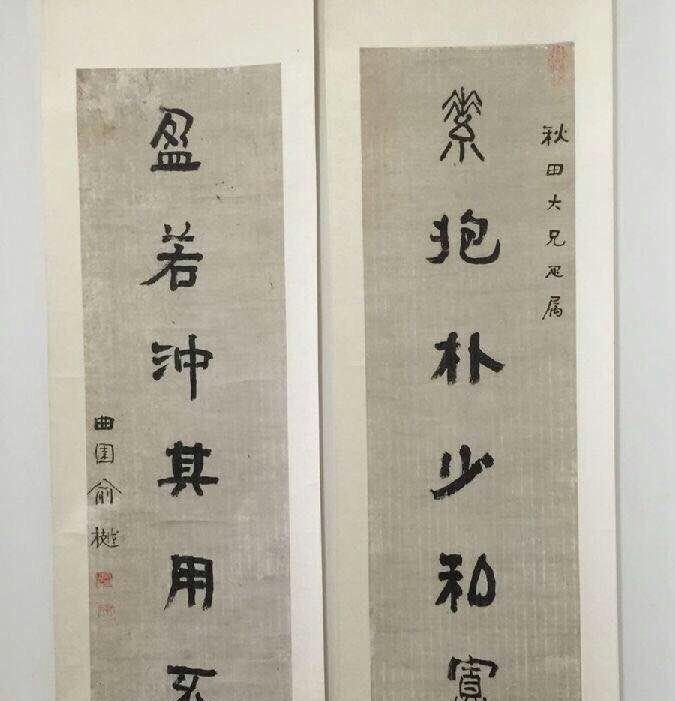 秋田大兄疋属
素抱朴少私寡
盈若沖其用不
曲園俞樾